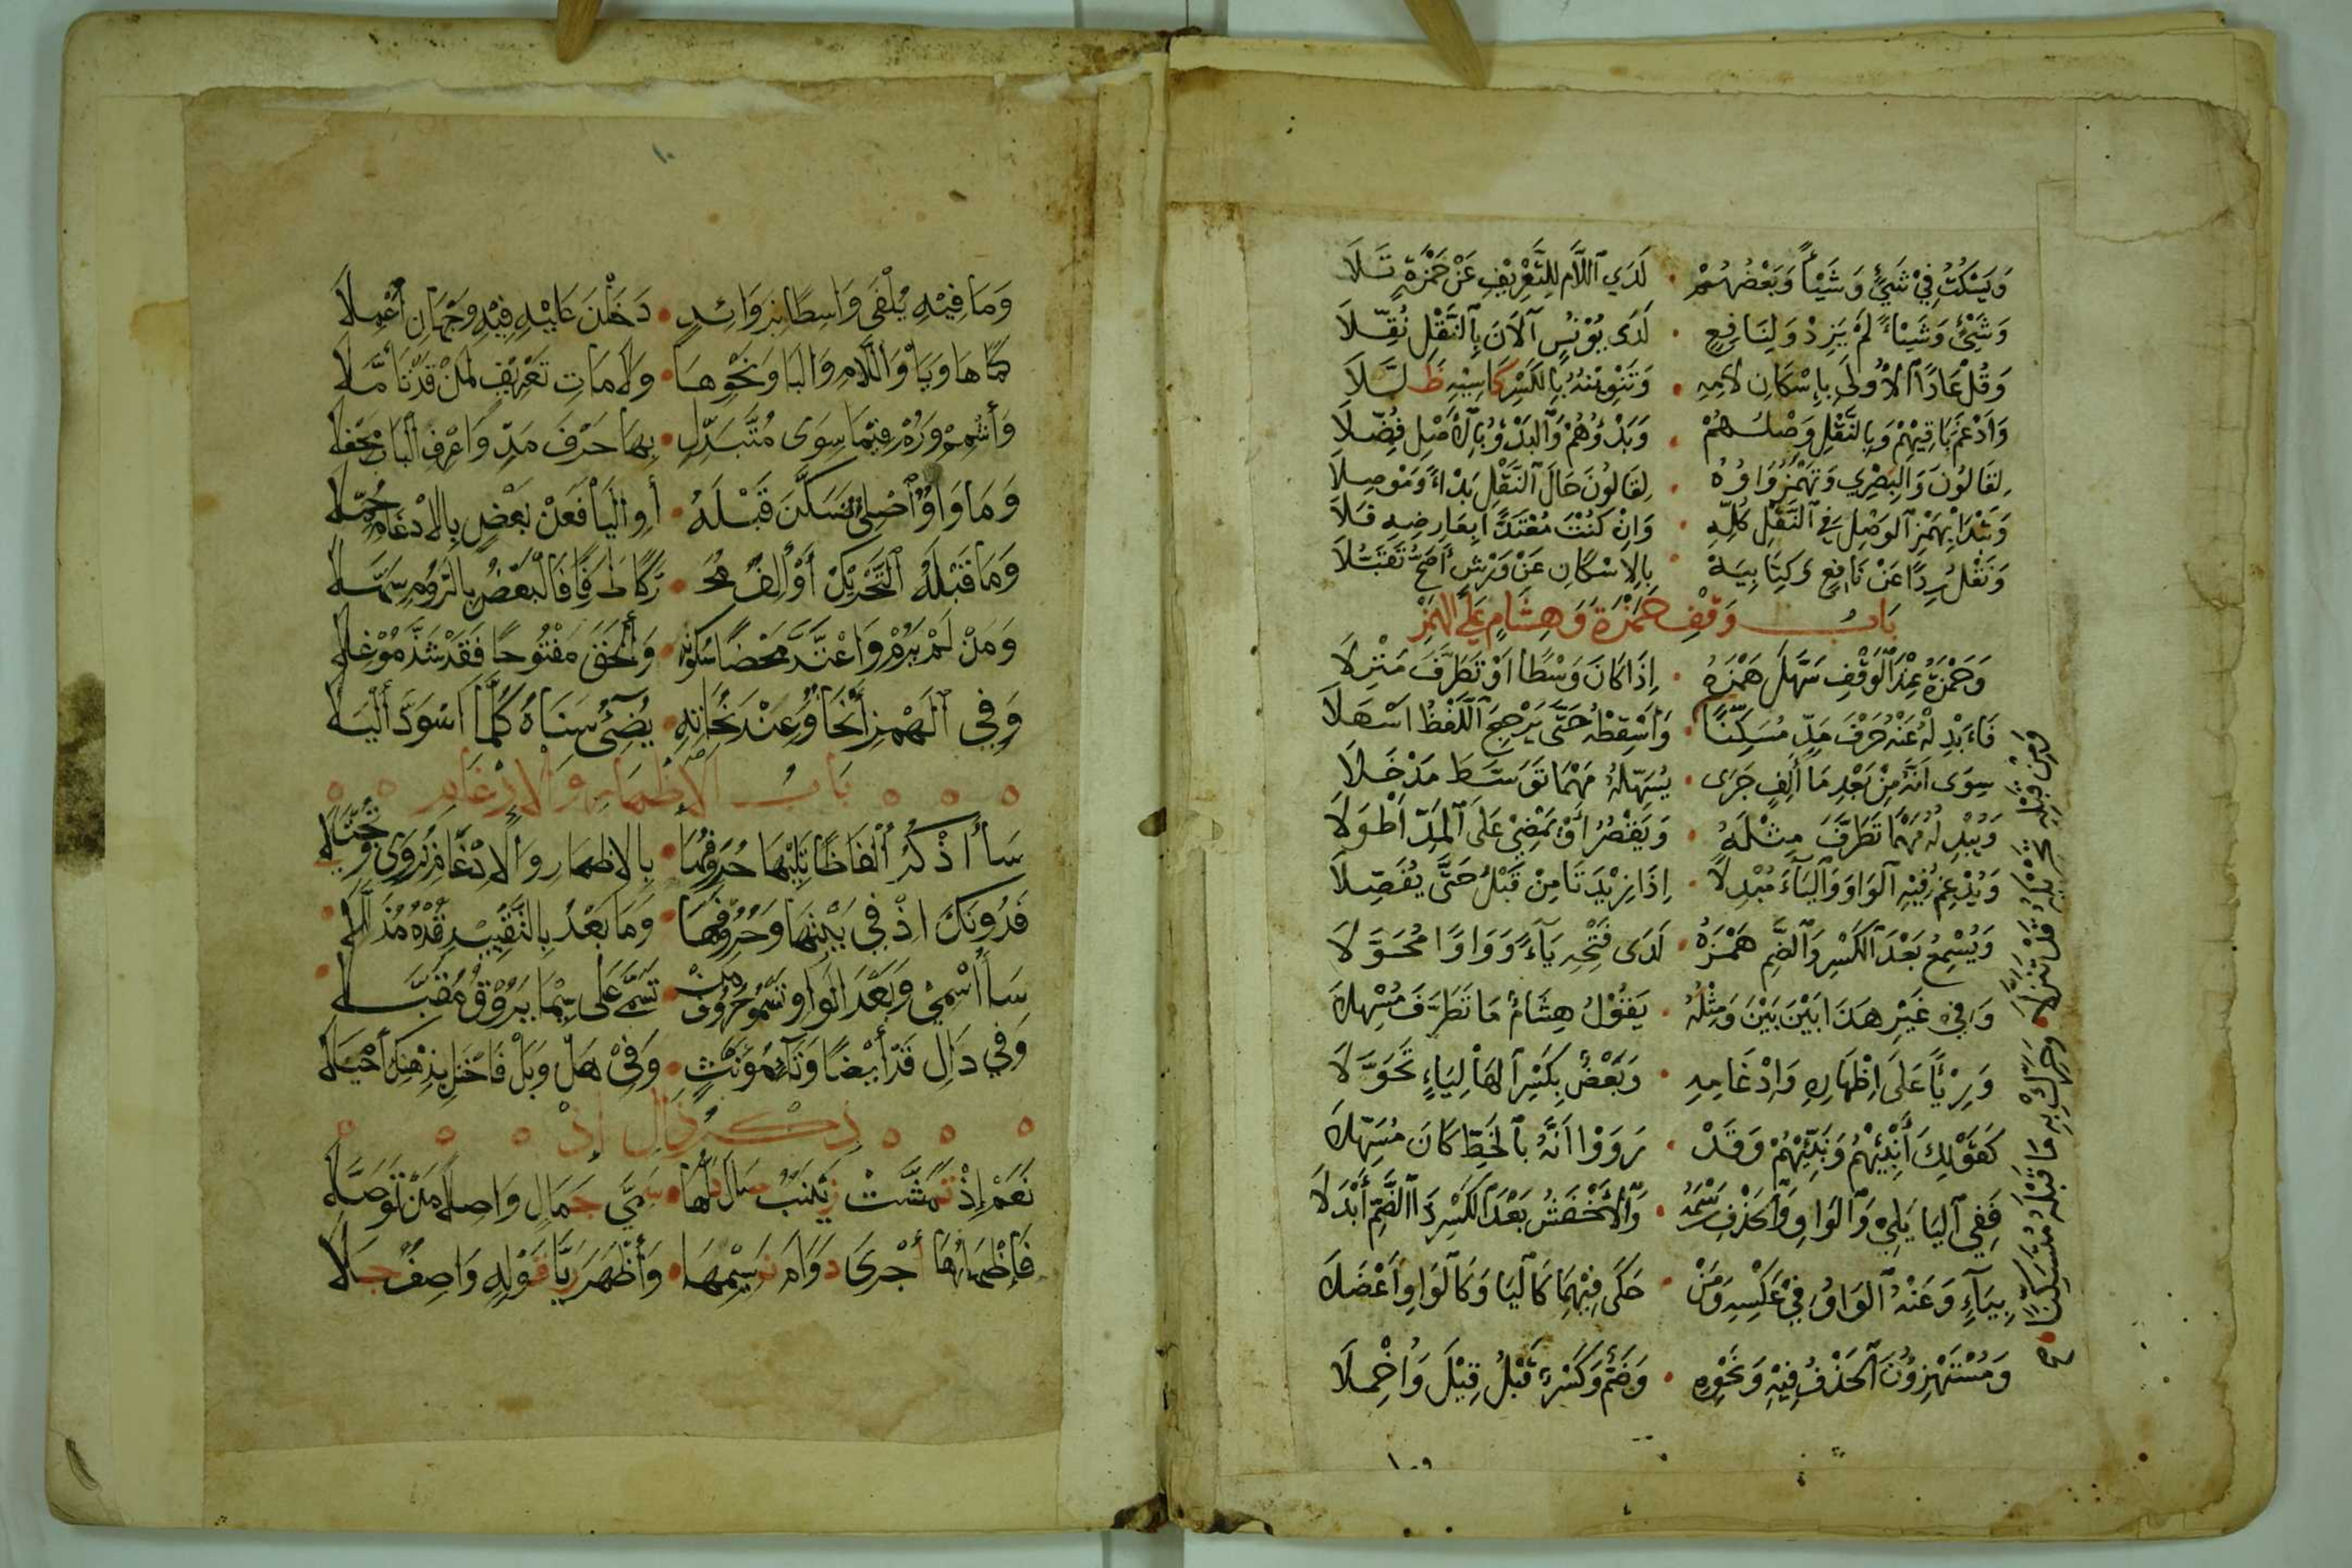 وَيَسْكُتُ فِيْ شَيْءٍ وَشَيْئاً وَبَعْضُهُمْ • لَدَى اَللَّامِ لِلتَّعْرِيْفِ عَنْ حَمْزَةٍ تَلَا
وَشَيْءٌ وَشَيْئاً لَمْ يَزِدْ وَلِنَافِعٍ • لَدَى يُوْنُسٍ آلَانَ بِالنَّقْلِ نُقِّلَا
وَقُلْ عَادًا الْأُوْلَى بِإِسْكَانِ لَامِهِ • وَتَنْوِيْنُهُ بِالْكَسْرِ كَاسِيْهِ ظَلَّلَا
وَأَدْغَمَ بَاقِيْهِمْ وَبِالنَّقْلِ وَصْلُهُمْ • وَبَدْؤُهُمْ وَالْبَدْؤُ بِالْأَصْلِ فُضِّلَا
لِقَالُوْنَ وَالْبَصْرِي وَتَهْمِزُ وَاوُهُ • لِقَالُوْنَ حَالَ النَّقْلِ بَدْءاً وَمَوْصِلَا
وَتَبْدَا بِهَمْزِ الْوَصْلِ فِي النَّقْلِ كُلِّهِ • وَإِنْ كُنْتَ مُعْتَدًّا بِعَارِضِهِ فَلَا
وَنَقْلُ رِدًا عَنْ نَافِعٍ وَكِتَابِيَهْ • بِالِاسْكَانِ عَنْ وَرْشٍ أَصَحُّ تَقَبُّلَا
بَابُ وَقْفِ حَمْزَةَ وَهِشَامٍ عَلَى الْهَمْزِ
وَحَمْزَةُ عِنْدَ الْوَقْفِ سَهَّلَ هَمْزَهُ • إِذَا كَانَ وَسْطًا أَوْ تَطَرَّفَ مَنْزِلَا
فَأَبْدِلْهُ عَنْهُ حَرْفَ مَدٍّ مُسَكِّنًا • وَأَسْقِطْهُ حَتَّى يَرْجِعَ اللَّفْظُ أَسْهَلَا
وَمِنْ قَبْلِهِ تَحْرِيْكُهُ قَدْ تَنَزَّلَا • وَحَرِّكْ بِهِ مَا قَبْلَهُ مُتَسَكِّنًا
سِوَى أَنَّهُ مِنْ بَعْدِ مَا أَلِفٍ جَرَى • يُسَهِّلُهُ مَهْمَا تَوَسَّطَ مَدْخَلَا
وَيُبْدِلُهُ مَهْمَا تَطَرَّفَ مِثْلَهُ • وَيَقْصُرُ أَوْ يَمْضِيْ عَلَى الْمَدِّ أَطْوَلَا
وَيُدْغِمُ فِيْهِ الْوَاوَ وَالْيَاءَ مُبْدِلًا • إِذَا زِيْدَتَا مِنْ قَبْلُ حَتَّى يُفَصِّلَا
وَيُسْمِعُ بَعْدَ الْكَسْرِ وَالضَّمِّ هَمْزَهُ • لَدَى فَتْحِهِ يَاءً وَوَاوًا مُحَوَّلَا
وَفِي غَيْرِ هَذَا بَيْنَ بَيْنَ وَمِثْلُهُ • يَقُوْلُ هِشَامٌ مَا تَطَرَّفَ مُسْهِلَا
وَرِئْيًا عَلَى إِظْهَارِهِ وَإِدْغَامِهِ • وَبَعْضٌ بِكَسْرِ الْهَا لِيَاءٍ تَحَوَّلَا
كَقَوْلِكَ أَنْبِئْهُمْ وَنَبِّئْهُمْ وَقَدْ • رَوَوْا أَنَّهُ بِالْخَطِّ كَانَ مُسَهِّلَا
فَفِي الْيَا يَلِيْ وَالْوَاوِ وَالْحَذْفِ رَسْمَهُ • وَالْأَخْفَشُ بَعْدَ الْكَسْرِ ذَا الضَّمِّ أَبْدَلَا
بِيَاءٍ وَعَنْهُ الْوَاوُ فِيْ عَكْسِهِ وَمَنْ • حَكَى فِيْهِمَا كَالْيَا وَكَالْوَاوِ أَعْضَلَا
وَمُسْتَهْزِؤُنَ الْحَذْفُ فِيْهِ وَنَحْوِهِ • وَضَمٌّ وَكَسْرٌ قَبْلُ قِيْلَ وَأُخْمِلَا
وَمَا فِيْهِ يُلْفَى وَاسِطًا بِزَوَائِدٍ • دَخَلْنَ عَلَيْهِ فِيْهِ وَجْهَانِ أُعْمِلَا
كَمَا هَا وَيَا وَاللَّامِ وَالْبَا وَنَحْوِهَا • وَلَامَاتِ تَعْرِيْفٍ لِمَنْ قَدْ تَأَمَّلَا
وَأَشْمِمْ وَرُمْ فِيْمَا سِوَى مُتَبَدِّلٍ • بِهَا حَرْفَ مَدٍّ وَاعْرِفِ الْبَابَ مَحْفِلَا
وَمَا وَاوٌ أَصْلِيٌّ تَسَكَّنَ قَبْلَهُ • أَوِ الْيَا فَعَنْ بَعْضٍ بِالِادْغَامِ حُمِّلَا
وَمَا قَبْلَهُ التَّحْرِيْكُ أَوْ أَلِفٌ مُحَـ • ـرَّكًا طَرَفًا فَالْبَعْضُ بِالرَّوْمِ سَهَّلَا
وَمَنْ لَمْ يَرُمْ وَاعْتَدَّ مَحْضًا سُكُوْنَهُ • وَأَلْحَقَ مَفْتُوْحًا فَقَدْ شَذَّ مُوْغِلَا
وَفِي الْهَمْزِ أَنْحَاءٌ وَعِنْدَ نُحَاتِهِ • يُضِيْءُ سَنَاهُ كُلَّمَا اسْوَدَّ أَلْيَلَا
بَابُ الْإِظْهَارِ وَالْإِدْغَامِ
سَأَذْكُرُ أَلْفَاظًا تَلِيْهَا حُرُوْفُهَا • بِالِاظْهَارِ وَالْإِدْغَامِ تُرْوَى وَتُجْتَلَا
فَدُوْنَكَ إِذْ فِي بَيْتِهَا وَحُرُوْفُهَا • وَمَا بَعْدُ بِالتَّقْيِيْدِ قُدْهُ مُذَلَّلَا
سَأُسْمِيْ وَبَعْدَ الْوَاوِ تَسْمُو حُرُوْفُ مَنْ • تَسَمَّى عَلَى سِيْمَا يَرُوْقُ مُقَبَّلَا
وَفِي دَالِ قَدْ أَيْضًا وَتَاءِ مُؤَنَّثٍ • وَفِيْ هَلْ وَبَلْ فَاحْتَلْ بِذِهْنِكَ أَحْيَلَا
ذِكْرُ ذَالِ إِذْ
نَعَمْ إِذْ تَمَشَّتْ زَيْنَبٌ صَالَ دَلُّهَا • سَمِيَّ جَمَالٍ وَاصِلًا مَنْ تَوَصَّلَا
فَإِظْهَارُهَا أَجْرَى دَوَامَ نَسِيْمِهَا • وَأَظْهَرَ رَيَّا قَوْلِهِ وَاصِفٌ جَلَا